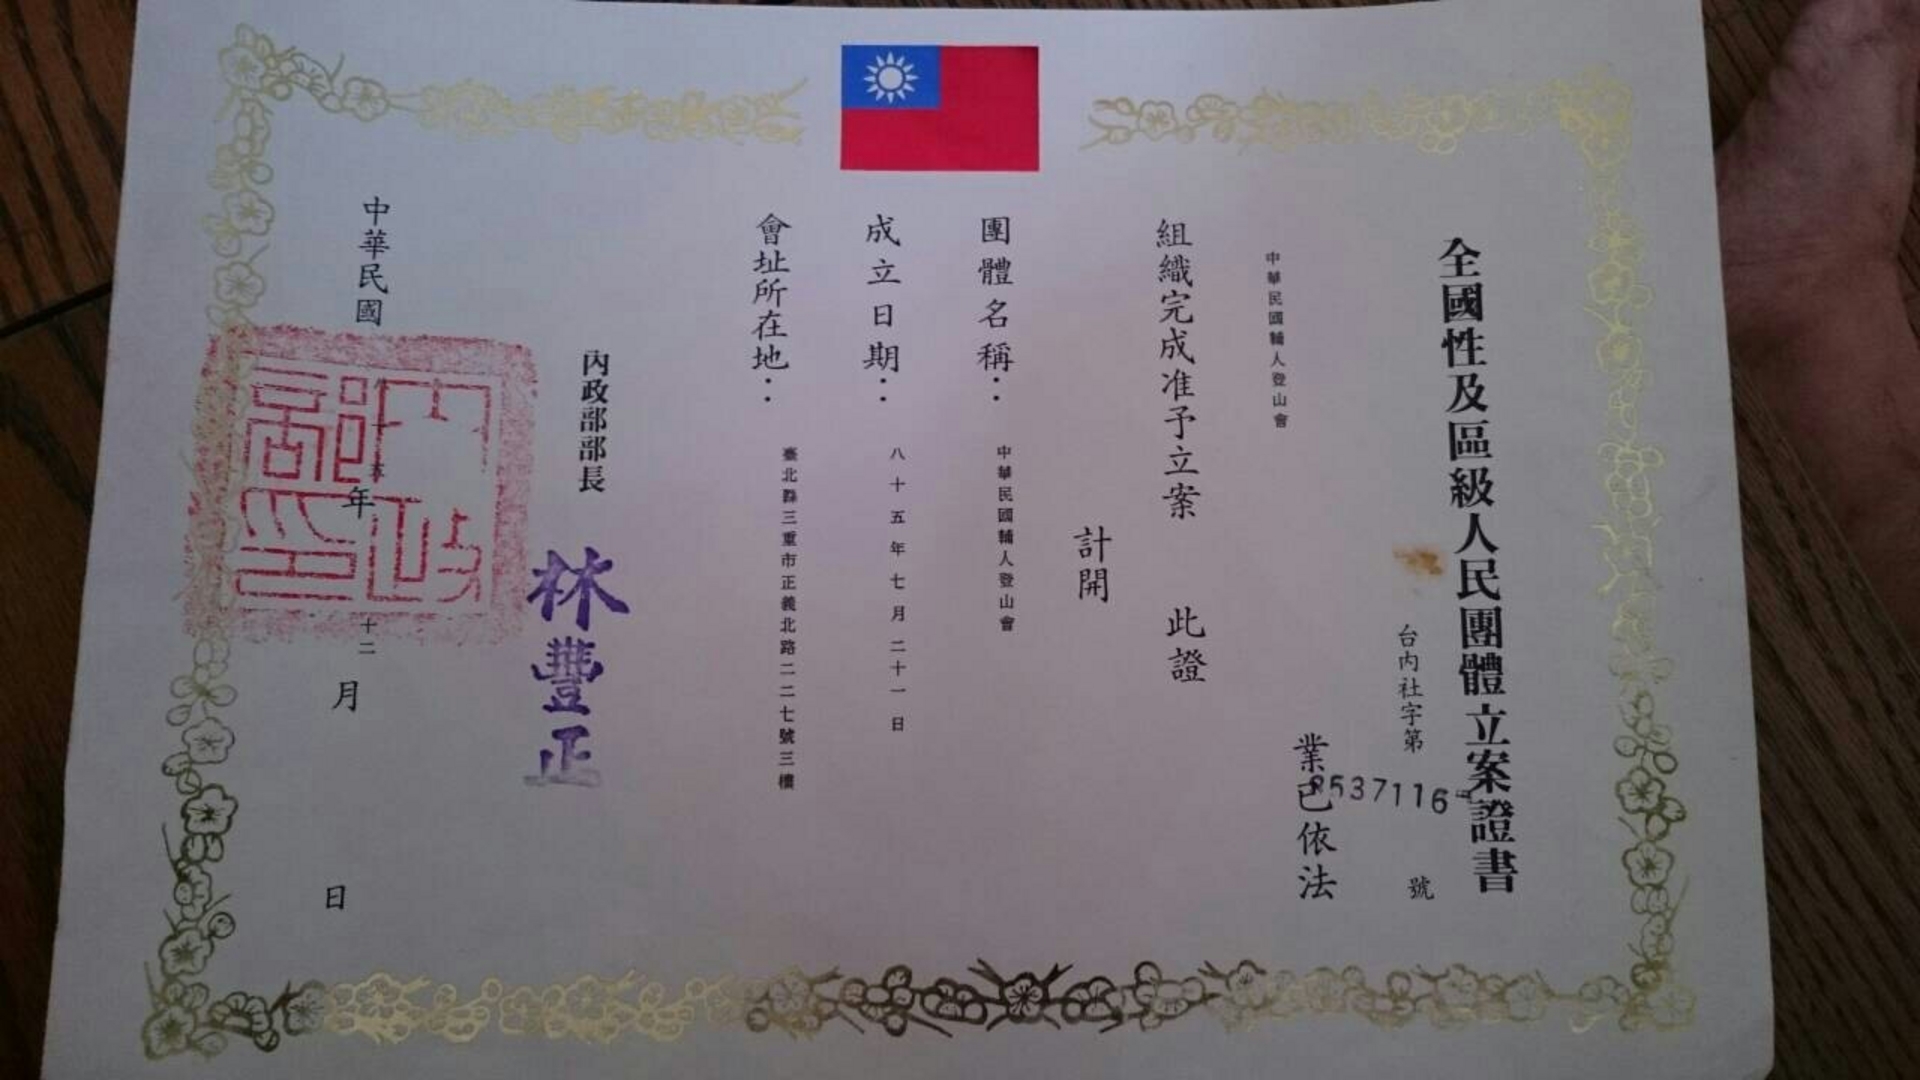 全國性及區級人民團體立案證書
台內社字第8537116號
中華民國輔人登山會
業已依法
組織完成准予立案 此證
計開
團體名稱：中華民國輔人登山會
成立日期：八十五年七月二十一日
會址所在地：臺北縣三重市正義北路二二七號三樓
內政部部長 林豐正
中華民國 年十二月 日
內政部印